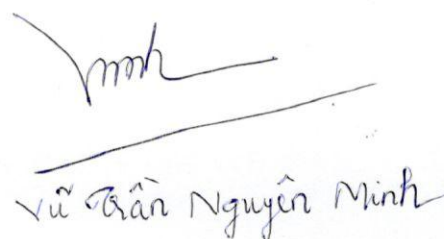 Vũ Trần Nguyên Minh